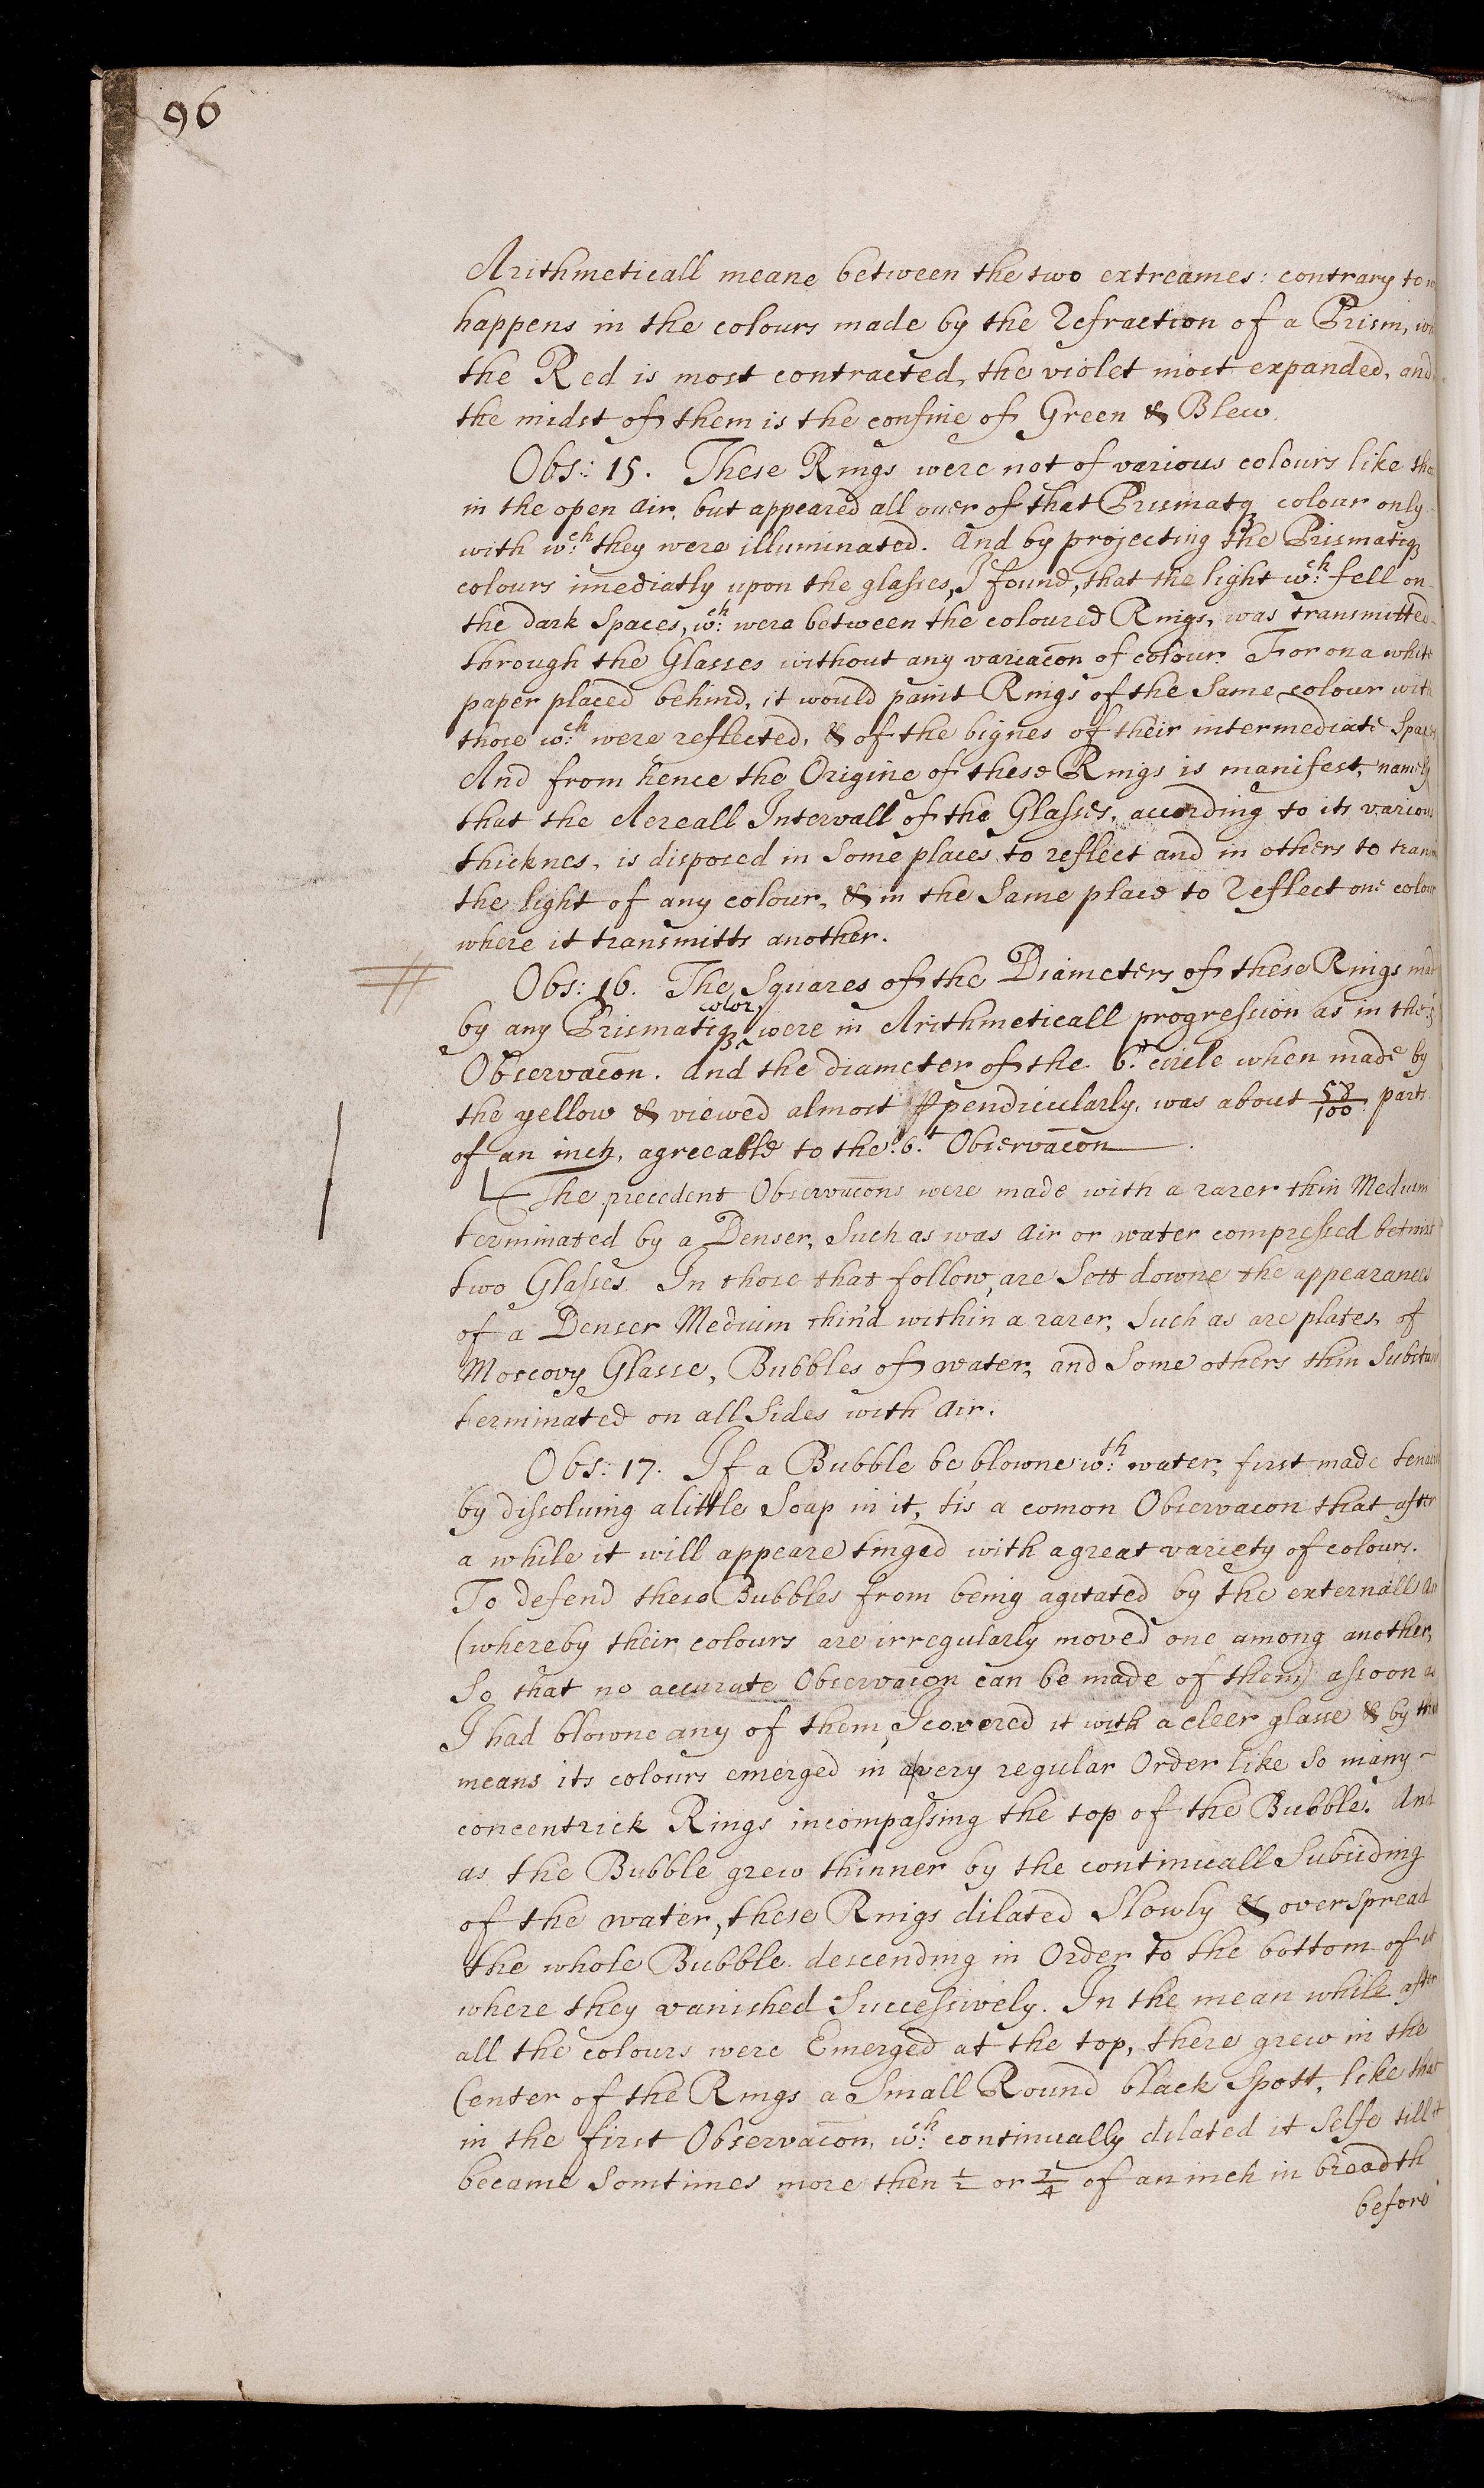 96
Arithmeticall meane between the two extreames: contrary to
happens in the colours made by the Refraction of a Prism,
the Red is most contracted, the violet most expanded, and
the midst of them is the confine of Green & Blew.
Obs: 15. These Rings were not of various colours like
in the open Air, but appeared all over of that Prismatiq colour only
with wch they were illuminated. And by projecting the Prismatiq
colours imediatly upon the glasses, I found, that the light wch fell on
the dark Spaces, wch were between the coloured Rings, was transmitted
through the Glasses without any variacōn of colour. For on a white
paper placed behind, it would paint Rings of the Same colour with
those wch were reflected, & of the bignes of their intermediate Spaces
And from hence the Origine of these Rings is manifest, namely
that the Aereall Intervall of the Glasses, according to its various
thicknes, is disposed in Some places to reflect and in others to
the light of any colour, & in the Same place to Reflect one colour
where it transmitts another.
Obs: 16. The Squares of the Diameters of these Rings
color,
by any Prismatiq were in Arithmeticall progression as in the
Observacōn. And the diameter of the 6t circle when made by
the yellow & viewed almost ppendicularly, was about 58/100 parts
of an inch, agreeable to the 6t Observacōn
The precedent Observacōns were made with a rarer thin Medium
terminated by a Denser, Such as was Air or water compressed betwixt
two Glasses. In those that follow, are Sett downe the appearances
of a Denser Medium thin'd within a rarer, Such as are plates of
Moscovy Glasse, Bubbles of water, and Some others thin
terminated on all Sides with Air.
Obs: 17. If a Bubble be blowne wth water, first made
by dissolving a little Soap in it, tis a comon Observacon that after
a while it will appeare tinged with a great variety of colours.
To defend these Bubbles from being agitated by the externall Air
(whereby their colours are irregularly moved one among another,
So that no accurate Observacon can be made of them) assoon as
I had blowne any of them, I covered it with a cleer glasse & by that
means its colours emerged in a very regular Order like So many
concentrick Rings incompassing the top of the Bubble. And
as the Bubble grew thinner by the continuall Subsiding
of the water, these Rings dilated Slowly & overspread
the whole Bubble descending in Order to the bottom of it
where they vanished Successively. In the mean while after
all the colours were Emerged at the top, there grew in the
Center of the Rings a Small Round black Spott, like that
in the first Observacōn, wch continually dilated it Selfe till it
became Somtimes more then 1/2 or 3/4 of an inch in breadth
before